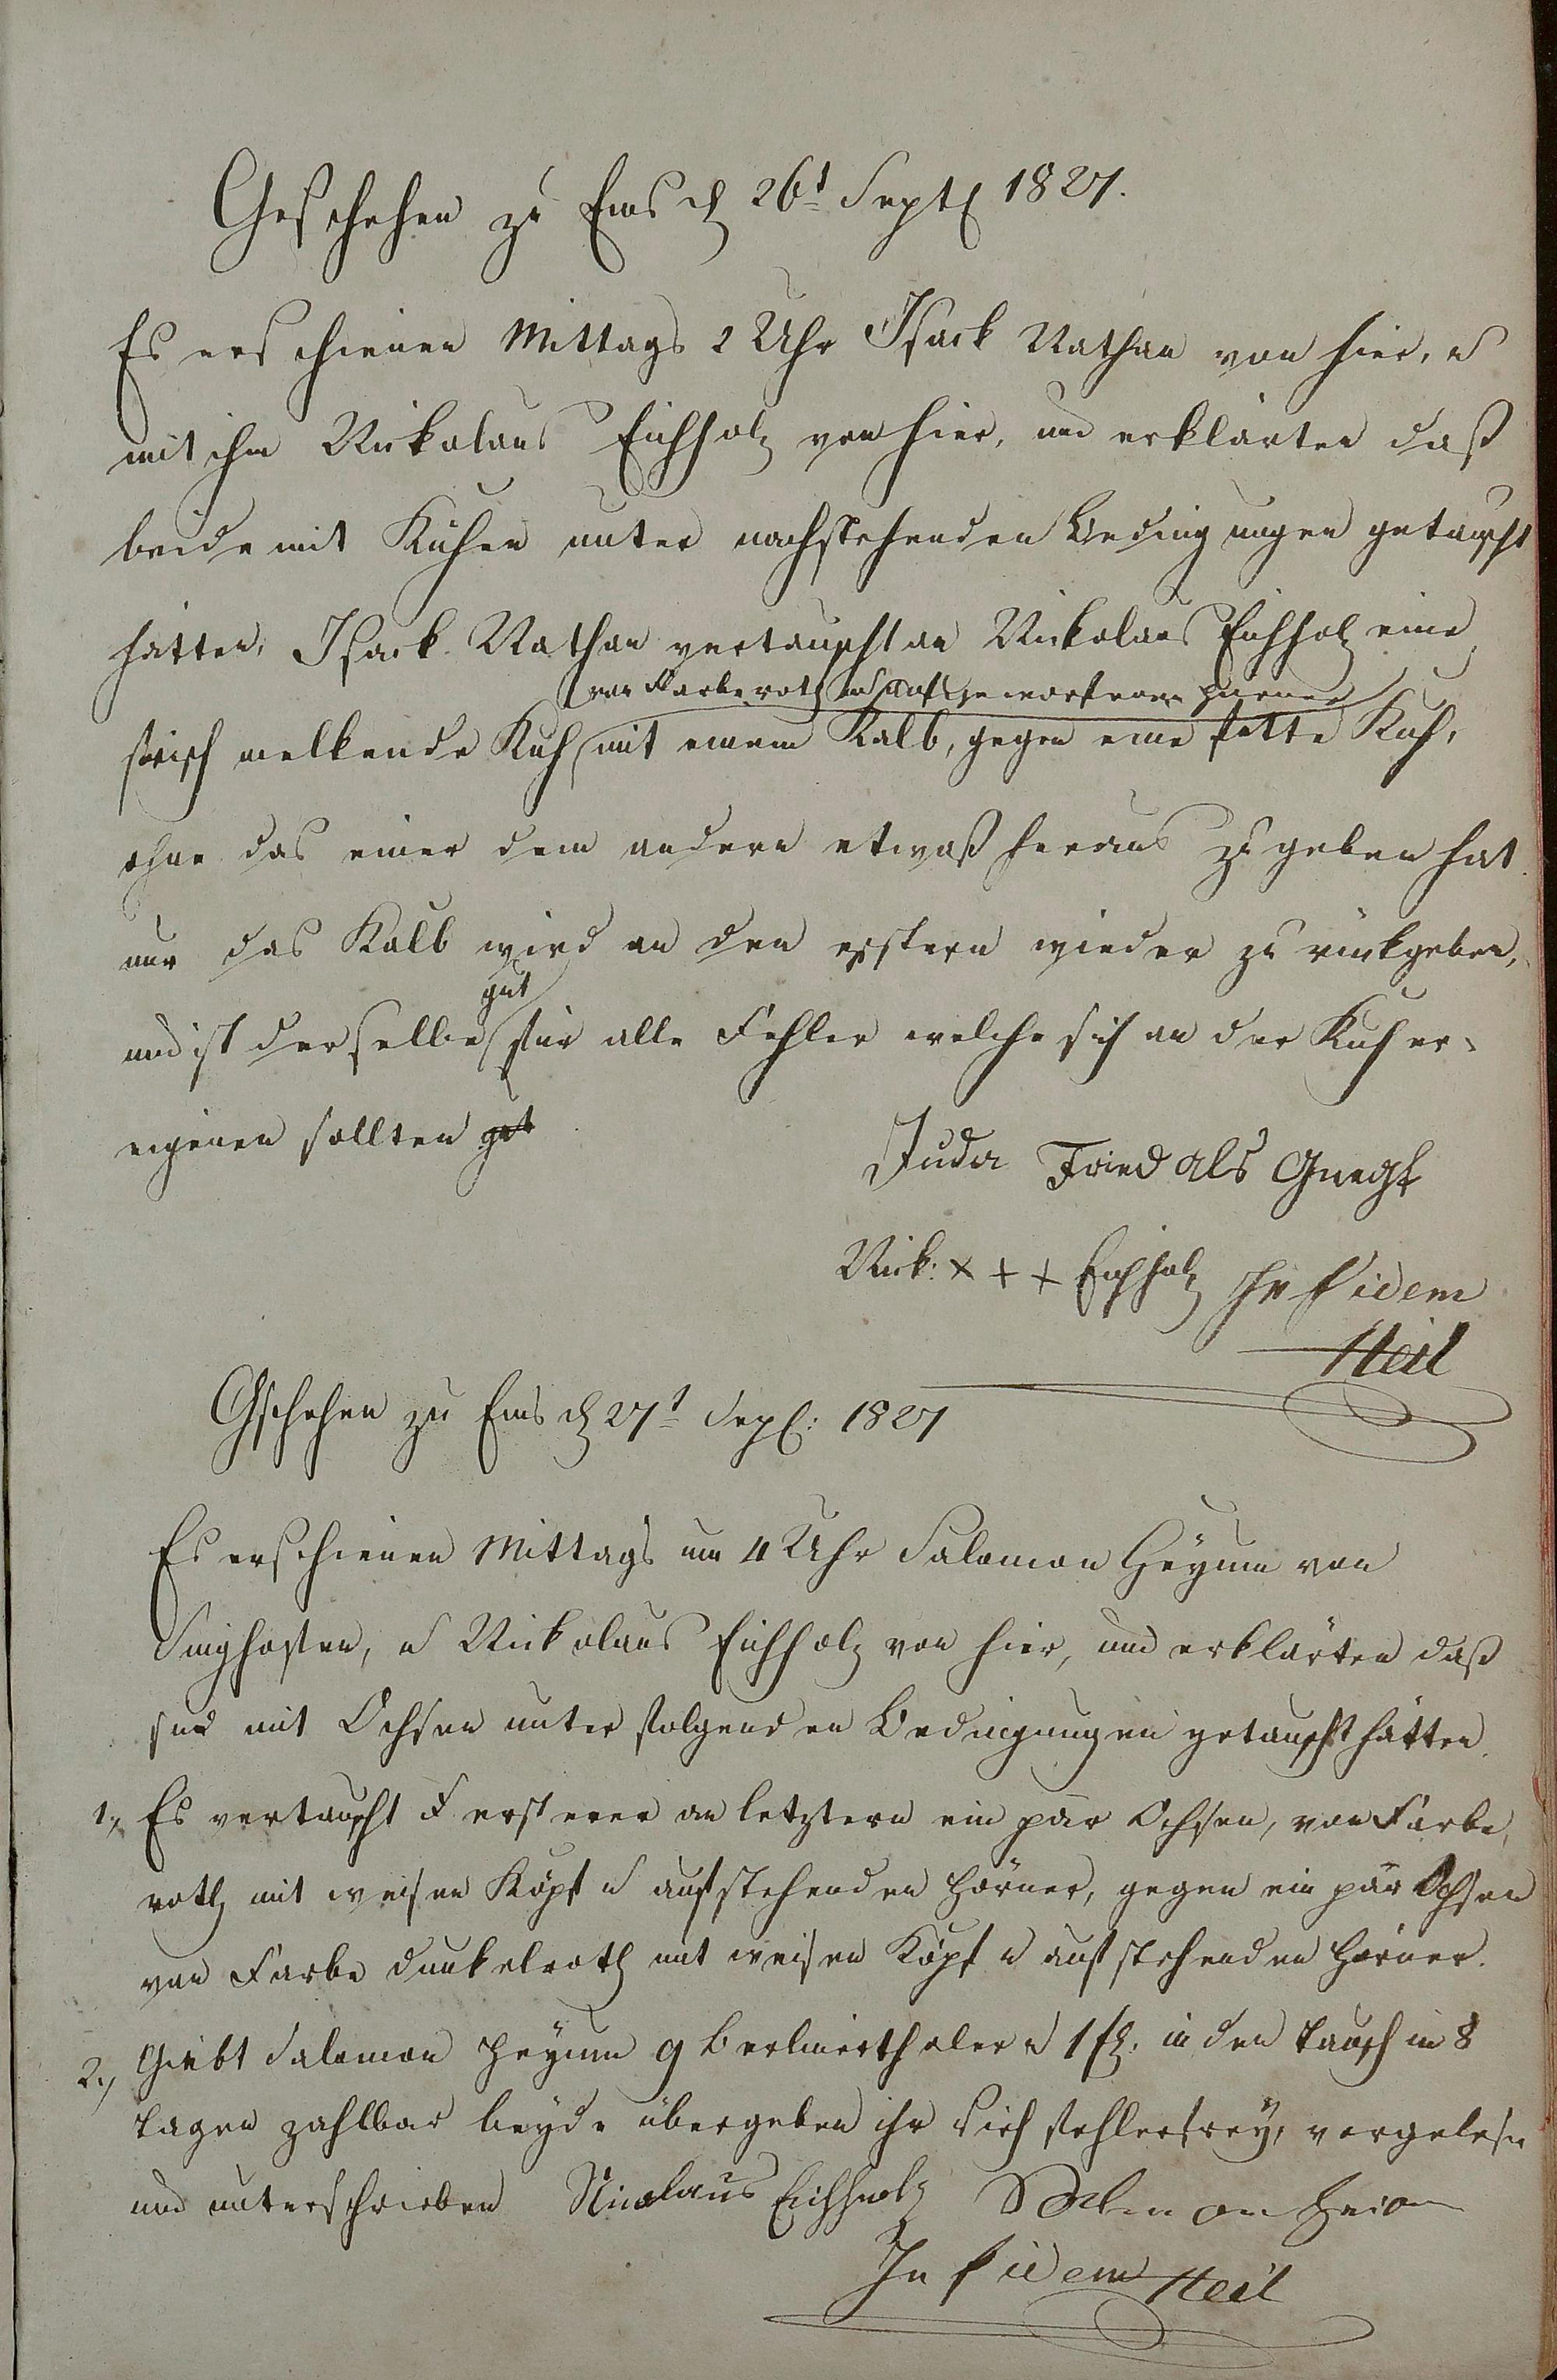 Geschehen zu Ems d 26t Sept 1827.
Es erschienen Mittags 2 Uhr Isack Nathan von hier, u
mit ihm Nickolaus Eichholz von hier, und erklärten daß
beide mit Kühen unter nachstehenden Bedingungen getauscht
hätten, Isack Nathan vertauscht an Nickolaus Eichholz eine
von Farbe roth u aufgeworfenen Hörner
frisch melkende Kuh mit einem Kalb, gegen eine fette Kuh,
ohne das einer dem andern etwaß heraus zu geben hat.
nur das Kalb wird an den erstern wieder zurückgeben,
gut
und ist derselbe für alle Fehler welche sich an der Kuh er-
eigenen sollten gut
Juda Fried als
Nick: x + + Eichholz In fidem
Heil
Gschehen zu Ems d 27t Sept: 1827
Es erschienen Mittags um 4 Uhr Salomon Heyum von
Singhofen, u Nickolaus Eichholz von hier, und erklärten daß
sie mit Ochsen unter folgenden Bedingungen getauscht hätten.
1, Es vertauscht ersterer an letztern ein par Ochsen, von Farbe
roth mit weisen Köpf u aufstehenden Hörner, gegen ein par Ochsen
von Farbe dunkelroth mit weisen Köpf u aufstehenden Hörner.
2., Giebt Salomon Heyum 9 Berlinerthaler u 1 f. in den Tausch in 8
Tagen zahlbar beyde übergeben ihr Vieh fehlerfrey, vorgelesen
und unterschrieben Nicolaus Eichholz Salomon Heium
In fidem Heil